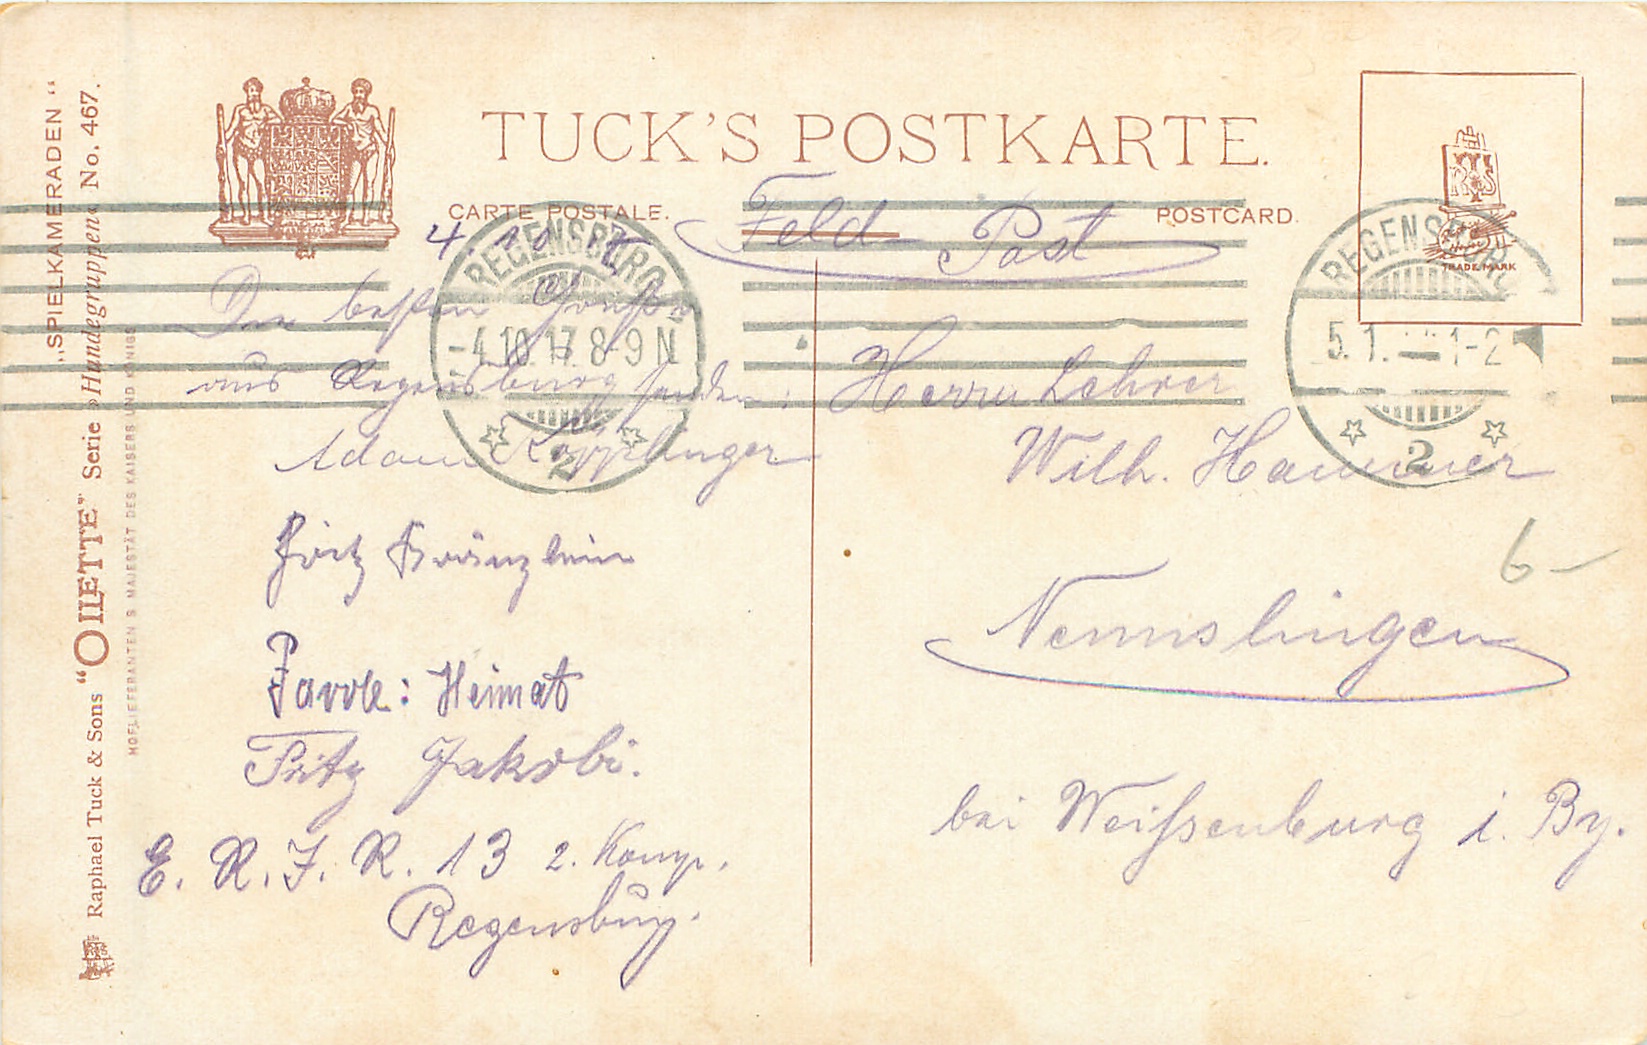 TUCK'S POSTKARTE.
CARTE POSTALE.
POSTCARD.
Feld-Post
4. 10. 17.
REGENSBURG
-4.10.17. 8-9 N
2
REGENSBURG
5. 1. 1-2
2
TRADE MARK
Die besten Grüße
aus Regensburg senden:
Adam
Fritz Kränzlein
Parole: Heimat
Fritz Jakobi.
E. R. J. R. 13 2. Komp.
Regensburg.
Herrn Lehrer
Wilh. Hammer
Nennslingen
bei Weißenburg i. By.
6-
„SPIELKAMERADEN"
Raphael Tuck & Sons "OILETTE" Serie »Hundegruppen« No. 467.
HOFLIEFERANTEN S. MAJESTÄT DES KAISERS UND KÖNIGS